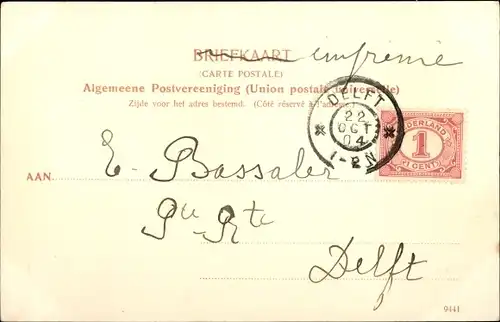 BRIEFKAART imprimé
(CARTE POSTALE)
Algemeene Postvereeniging (Union postale universelle)
Zijde voor het adres bestemd. (Côté réservé à l'adresse)
DELFT
22
OCT
04
1-2N
NEDERLAND
1
CENT
AAN E. Bassaler
Delft
9441